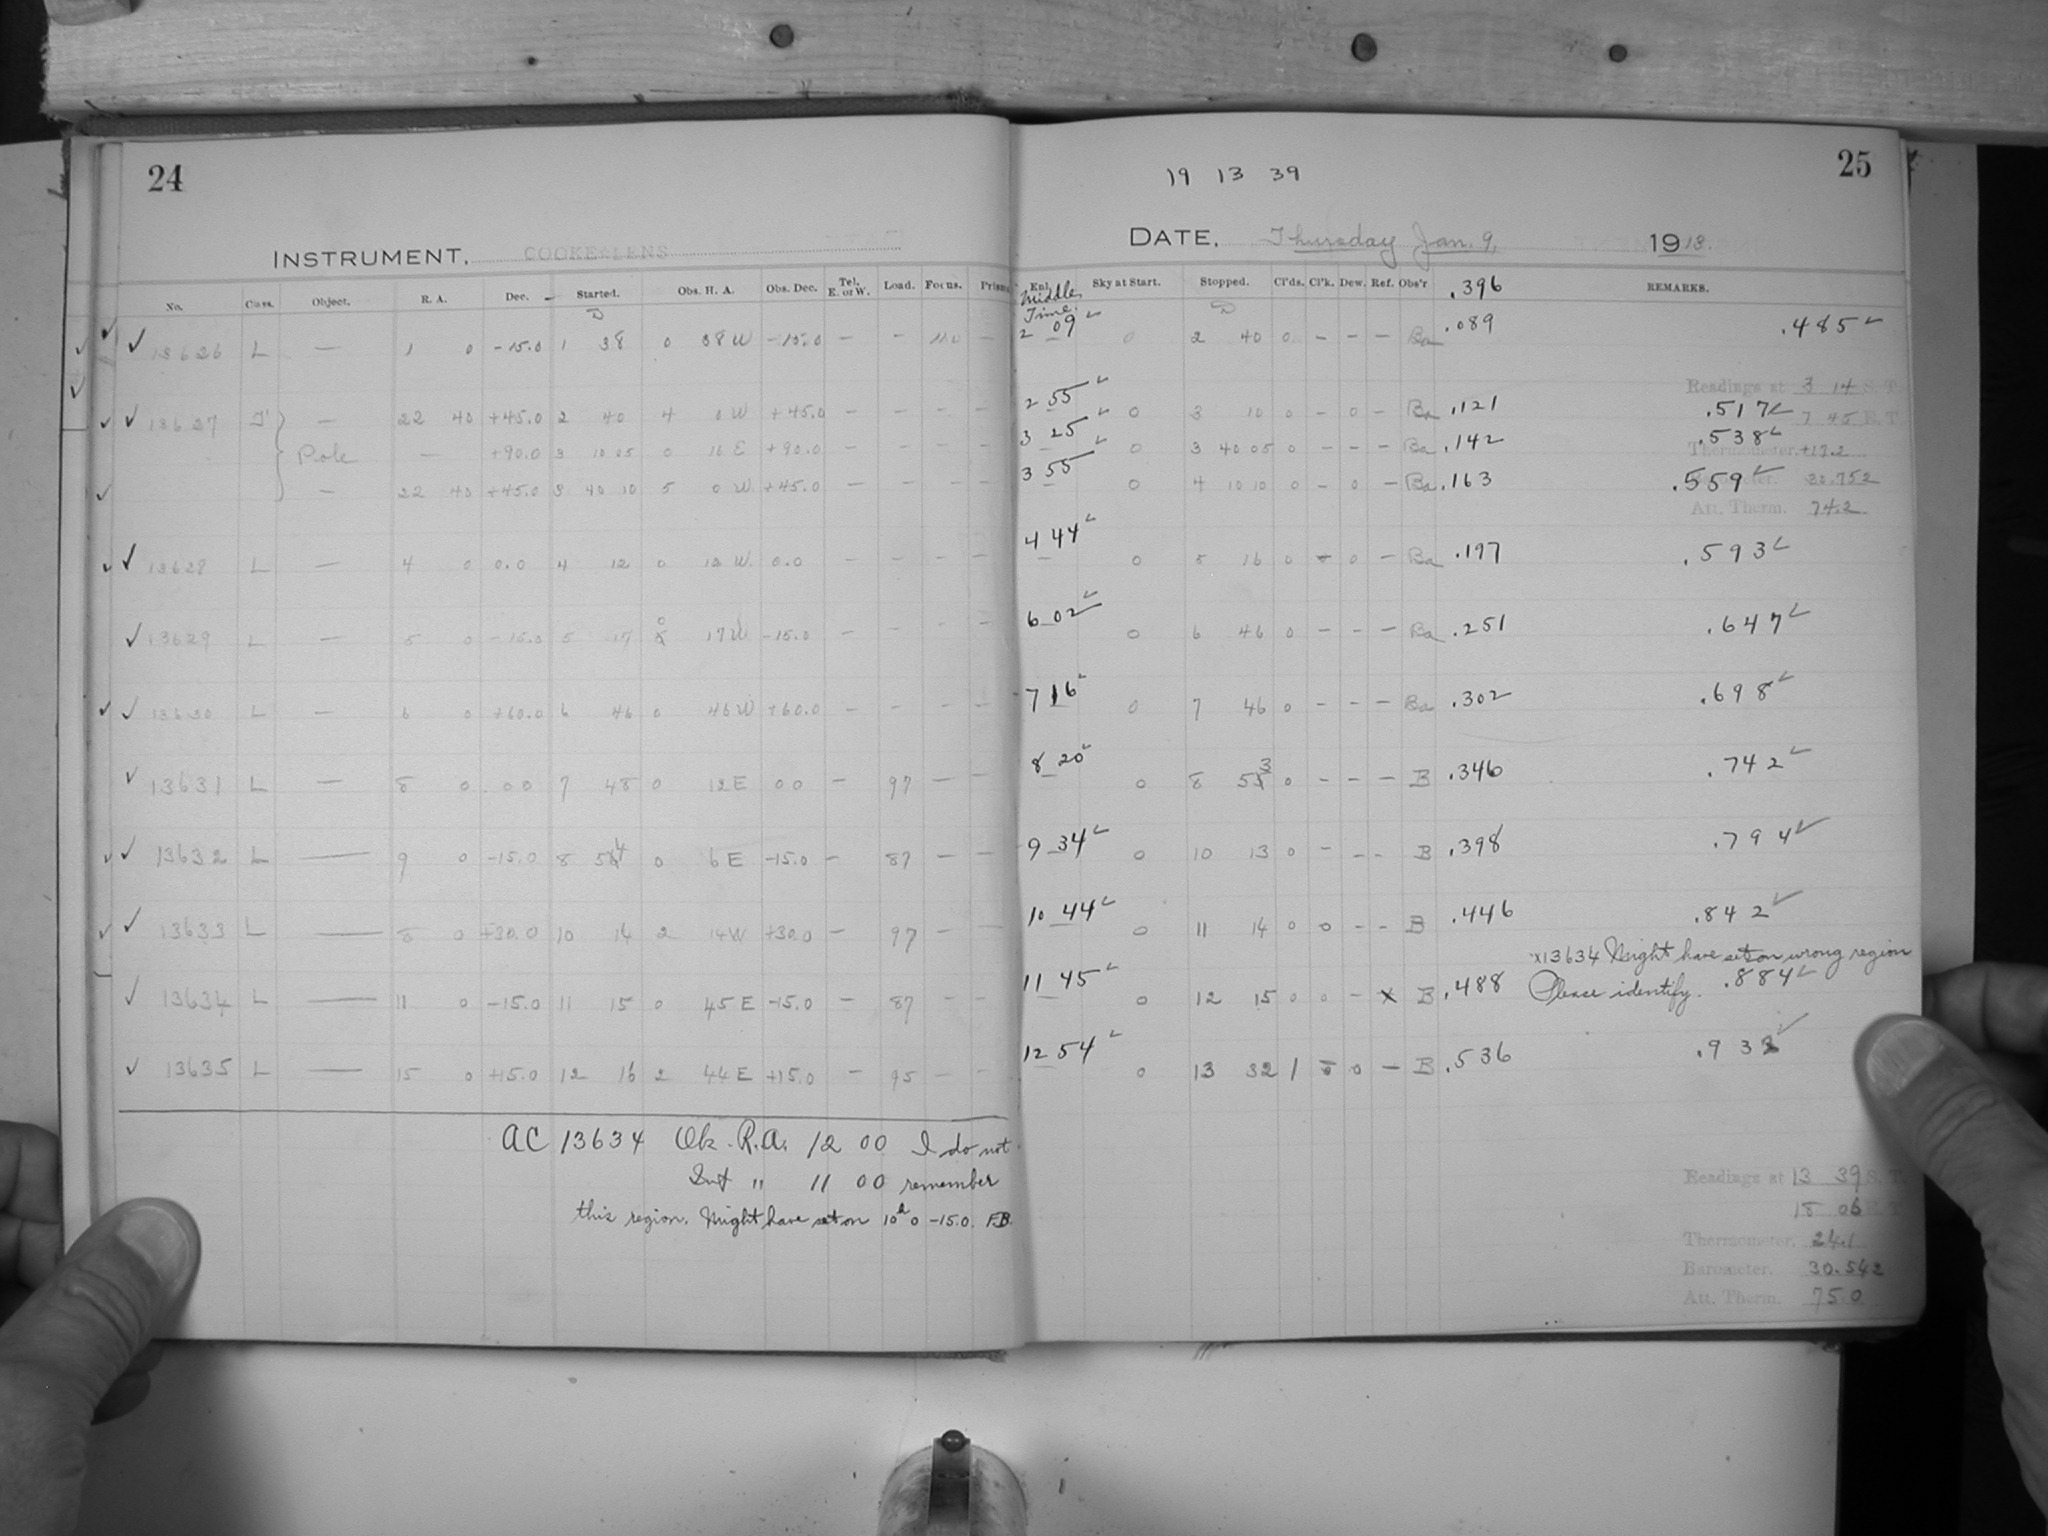 24
INSTRUMENT, COOKE LENS
No. Class. Object. R. A. Dec. Started. Obs. H. A. Obs. Dec. Tel. E. or W. Load. Focus. Prism
13626 L — 1 0 -15.0 1 38 0 38 W -15.0 — — —
13627 — 22 40 +45.0 2 40 4 0 W +45.0 — — — —
Pole — +90.0 3 10 05 0 16 E +90.0 — — — —
— 22 40 +45.0 3 40 10 5 0 W +45.0 — — — —
13628 L — 4 0 0.0 4 12 0 12 W 0.0 — — — —
13629 L — 5 0 -15.0 5 17 0 17 W -15.0 — — — —
13630 L — 6 0 +60.0 6 46 0 46 W +60.0 — — — —
13631 L — 8 0 0 0 7 48 0 12 E 0 0 — 97 — —
13632 L — 9 0 -15.0 8 54 0 6 E -15.0 — 87 — —
13633 L — 8 0 +30.0 10 14 2 14 W +30.0 — 97 — —
13634 L — 11 0 -15.0 11 15 0 45 E -15.0 — 87 — —
13635 L — 15 0 +15.0 12 16 2 44 E +15.0 — 95 — —
AC 13634 Ok. R.A. 12 00 I do not
" 11 00 remember
this region. Might have set on 10h 0 -15.0. F.B.
25
19 13 39
DATE, Thursday Jan. 9, 1913.
Enl. Sky at Start. Stopped. Cl'ds. Cl'k. Dew. Ref. Obs'r .396 REMARKS.
Middle Time.
2 09 0 2 40 0 — — — Ba .089 .485
Readings at 3 14 S. T.
2 55 0 3 10 0 — 0 — Ba .121 .517 7 45 E. T.
3 25 0 3 40 05 0 — — — Ba .142 .538
Thermometer. +17.2
3 55 0 4 10 10 0 — 0 — Ba .163 .559 Barometer. 30.752
Att. Therm. 74.2
4 44 0 5 16 0 0 — Ba .197 .593
6 02 0 6 46 0 — — — Ba .251 .647
7 16 0 7 46 0 — — — Ba .302 .698
8 20 0 8 53 0 — — — B .346 .742
9 34 0 10 13 0 — — - B .398 .794
10 44 0 11 14 0 0 — - B .446 .842
x13634 Might have set on wrong region
11 45 0 12 15 0 0 — x B .488 Please identify. .884
12 54 0 13 32 1 0 — B .536 .932
Readings at 13 39 S. T.
18 06 E. T.
Thermometer. 24.1
Barometer. 30.542
Att. Therm. 75.0